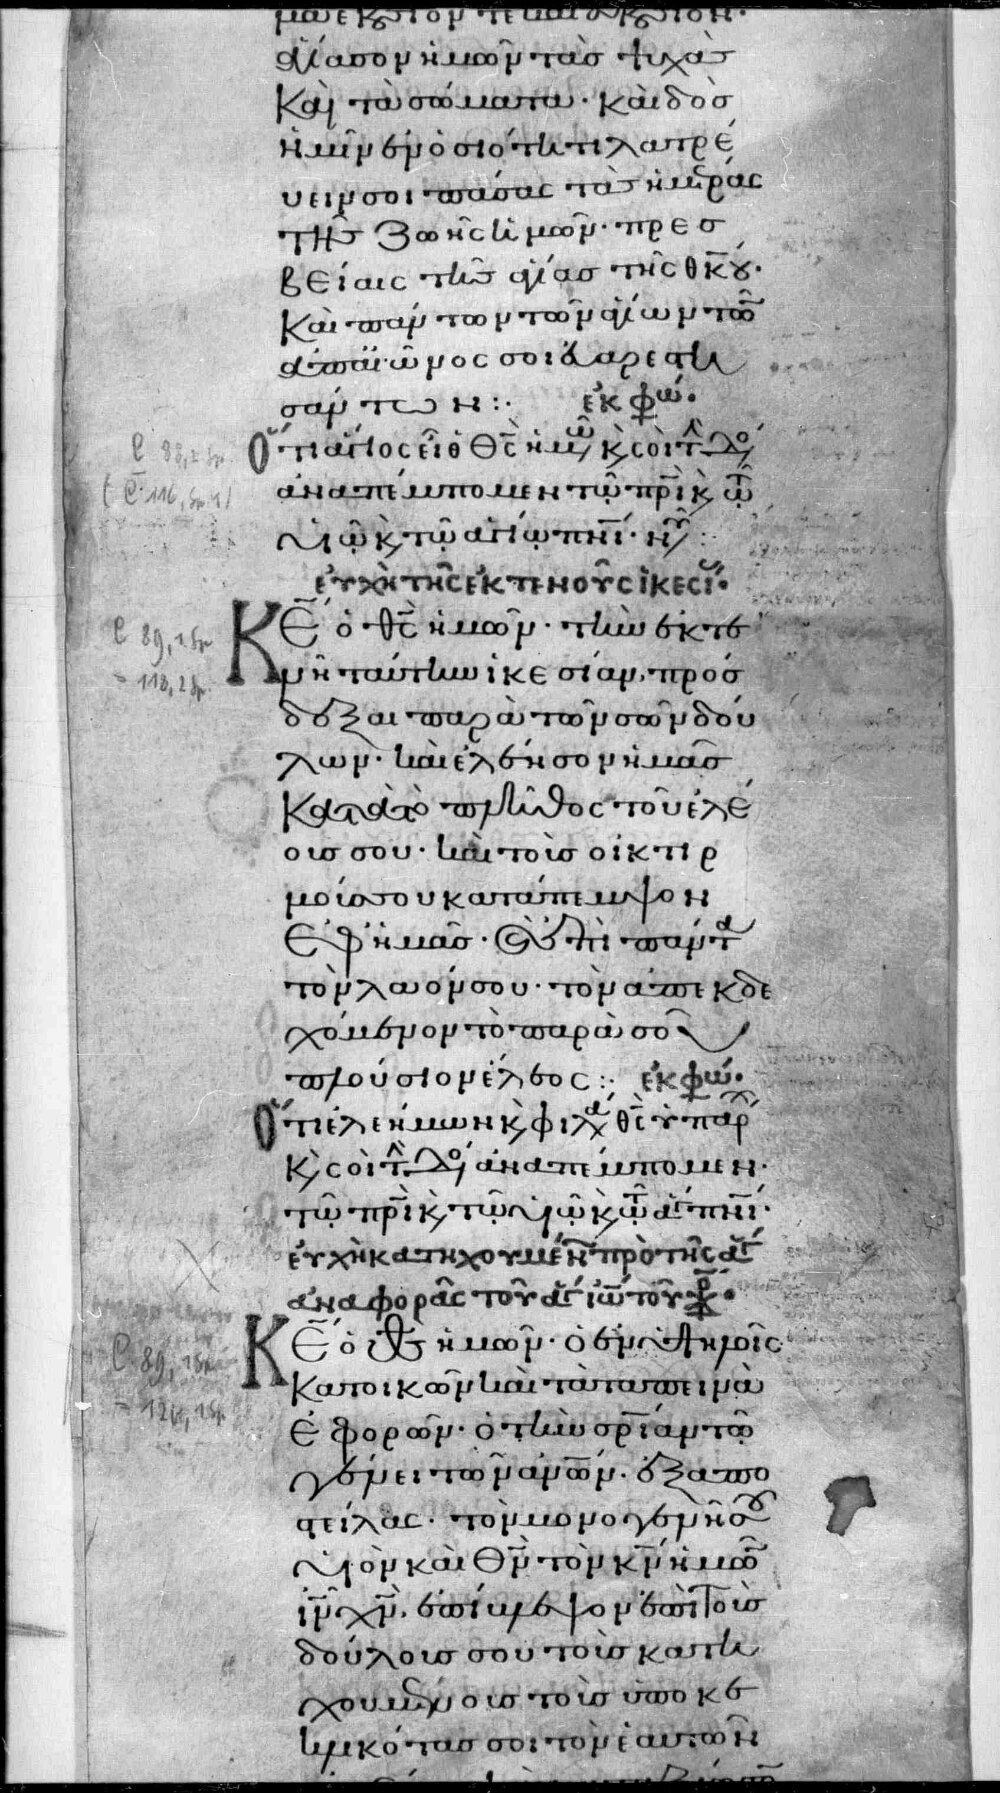 μα ἑκούσιόν τε καὶ ἀκούσιον·
ἁγίασον ἡμῶν τὰσ ψυχὰσ
Καὶ τὰ σώματα· καὶ δὸσ
ἡμῖν ἐν ὁσιότητι λατρέ
υειν σοι πάσας τὰσ ἡμέρας
τῆσ ζωῆς ἡμῶν· πρεσ
βείαις τῆσ ἁγίασ τῆς θκου·
Καὶ πάντων τῶν ἁγίων τῶν
ἀπαἰῶνος σοι εὐαρεστη
σάντων:· ἐκφώ·
Ὅτι ἅγιος εἶ ὁ θς ἡμῶν κ σοὶ τ δό
ἀναπέμπομεν τῷ πρὶ κ τῷ
υἱῷ κ τῷ ἁγίῳ πνι· νῦ:
εὐχὴ τῆς ἐκτενοῦς ἱκεσί·
Κε ὁ θς ἡμῶν· τὴν ἐκτε
νῆ ταύτην ἱκεσίαν, πρόσ
δεξαι παρὰ τῶν σῶν δού
λων· καὶ ἐλέησον ἡμᾶσ
Κατὰ τὸ πλῆθος τοῦ ἐλέ
ουσ σου· καὶ τοὺσ οἰκτιρ
μούσ σου κατάπεμψον
Ἐφ ἡμᾶσ· καὶ ἐπὶ πάντα
τὸν λαόν σου· τὸν ἀπεκδε
χόμενον τὸ παρὰ σοῦ
πλούσιον ἔλεος:· ἐκφώ·
Ὅτι ἐλεήμων κ φιλα θς ὑπάρ
κ σοὶ τ δό ἀναπέμπομεν·
τῷ πρὶ κ τῷ υἱῷ κ τῷ ἁγ πνι·
εὐχὴ κατηχουμέν πρὸ τῆς ἁγ
ἀναφορᾶς τοῦ ἁγ ἰω τοῦ χρ·
Κε ὁ θς ἡμῶν· ὁ ἐν ὑψηλοῖς
Κατοικῶν καὶ τὰ ταπεινὰ
Ἐφορῶν· ὁ τὴν σρίαν τῷ
γένει τῶν ἀνων· ἐξαπο
στείλας· τὸν μονογενῆ σου
υἱὸν καὶ θν τὸν κν ἡμῶν
ιν χν, ἐπίβλεψον ἐπὶ τοὺσ
δούλουσ σου τοὺσ κατη
χουμένουσ τοὺσ ὑποκε
κλικότασ σοι τὸν ἑαυτῶν